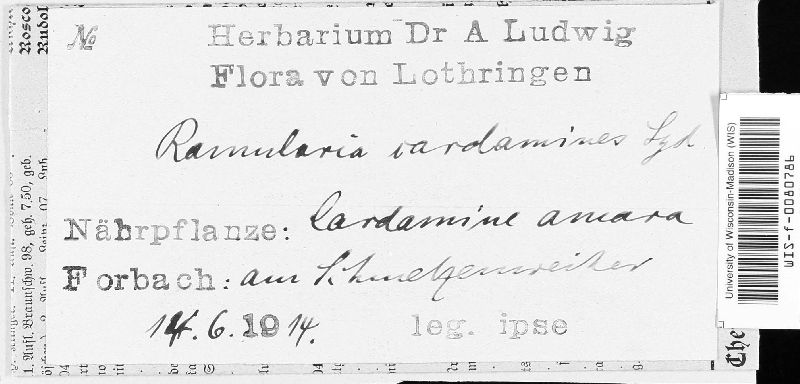 № Herbarium Dr A Ludwig
Flora von Lothringen
Ramularia cardamines Syd
Nährpflanze: Cardamine amara
Forbach: am Schmelzenweiher
14.6.1914. leg. ipse
University of Wisconsin-Madison (WIS)
WIS-f-0080786
Rosco
Rudol
1. Aufl. Braunschw. 98, geh. 7,50, geb.
The